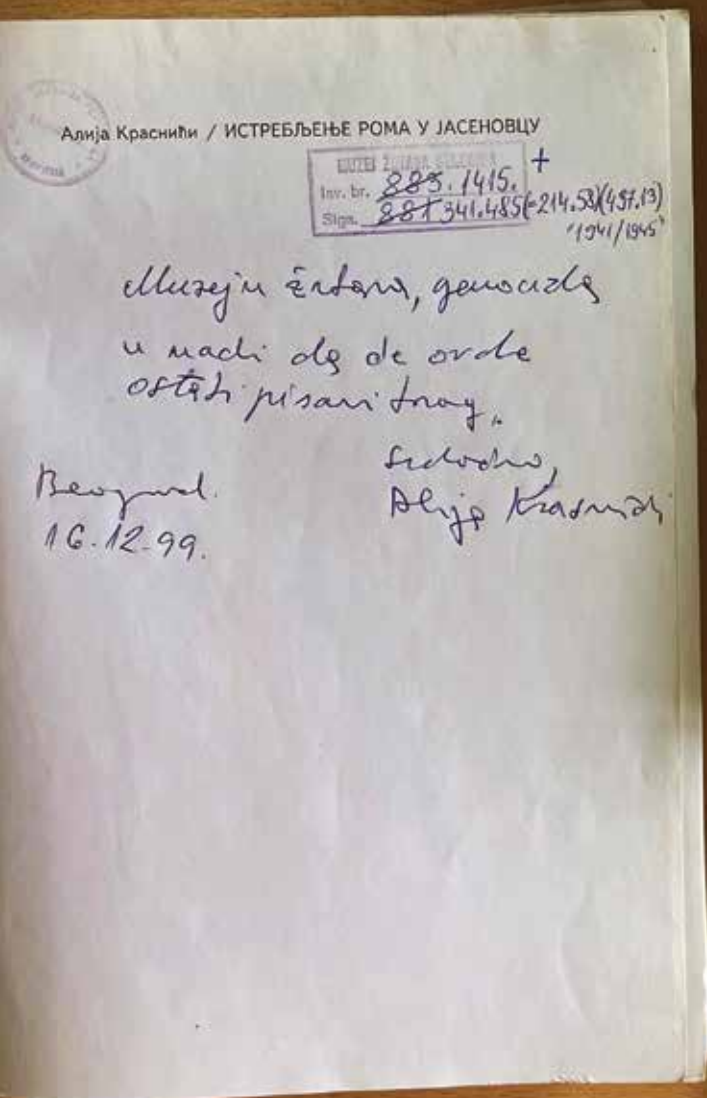 Алија Краснићи / ИСТРЕБЉЕЊЕ РОМА У ЈАСЕНОВЦУ
MUZEJ ŽRTAVA GENOCIDA +
Inv. br. 885. 1415.
Sign. 881 341.485(=214.58)(497.13)
"1941/1945"
Muzeju žrtava, genocida
u nadi da će ovde
ostati pisani trag.
Srdačno,
Beograd.
Alija Krasnići
16.12.99.